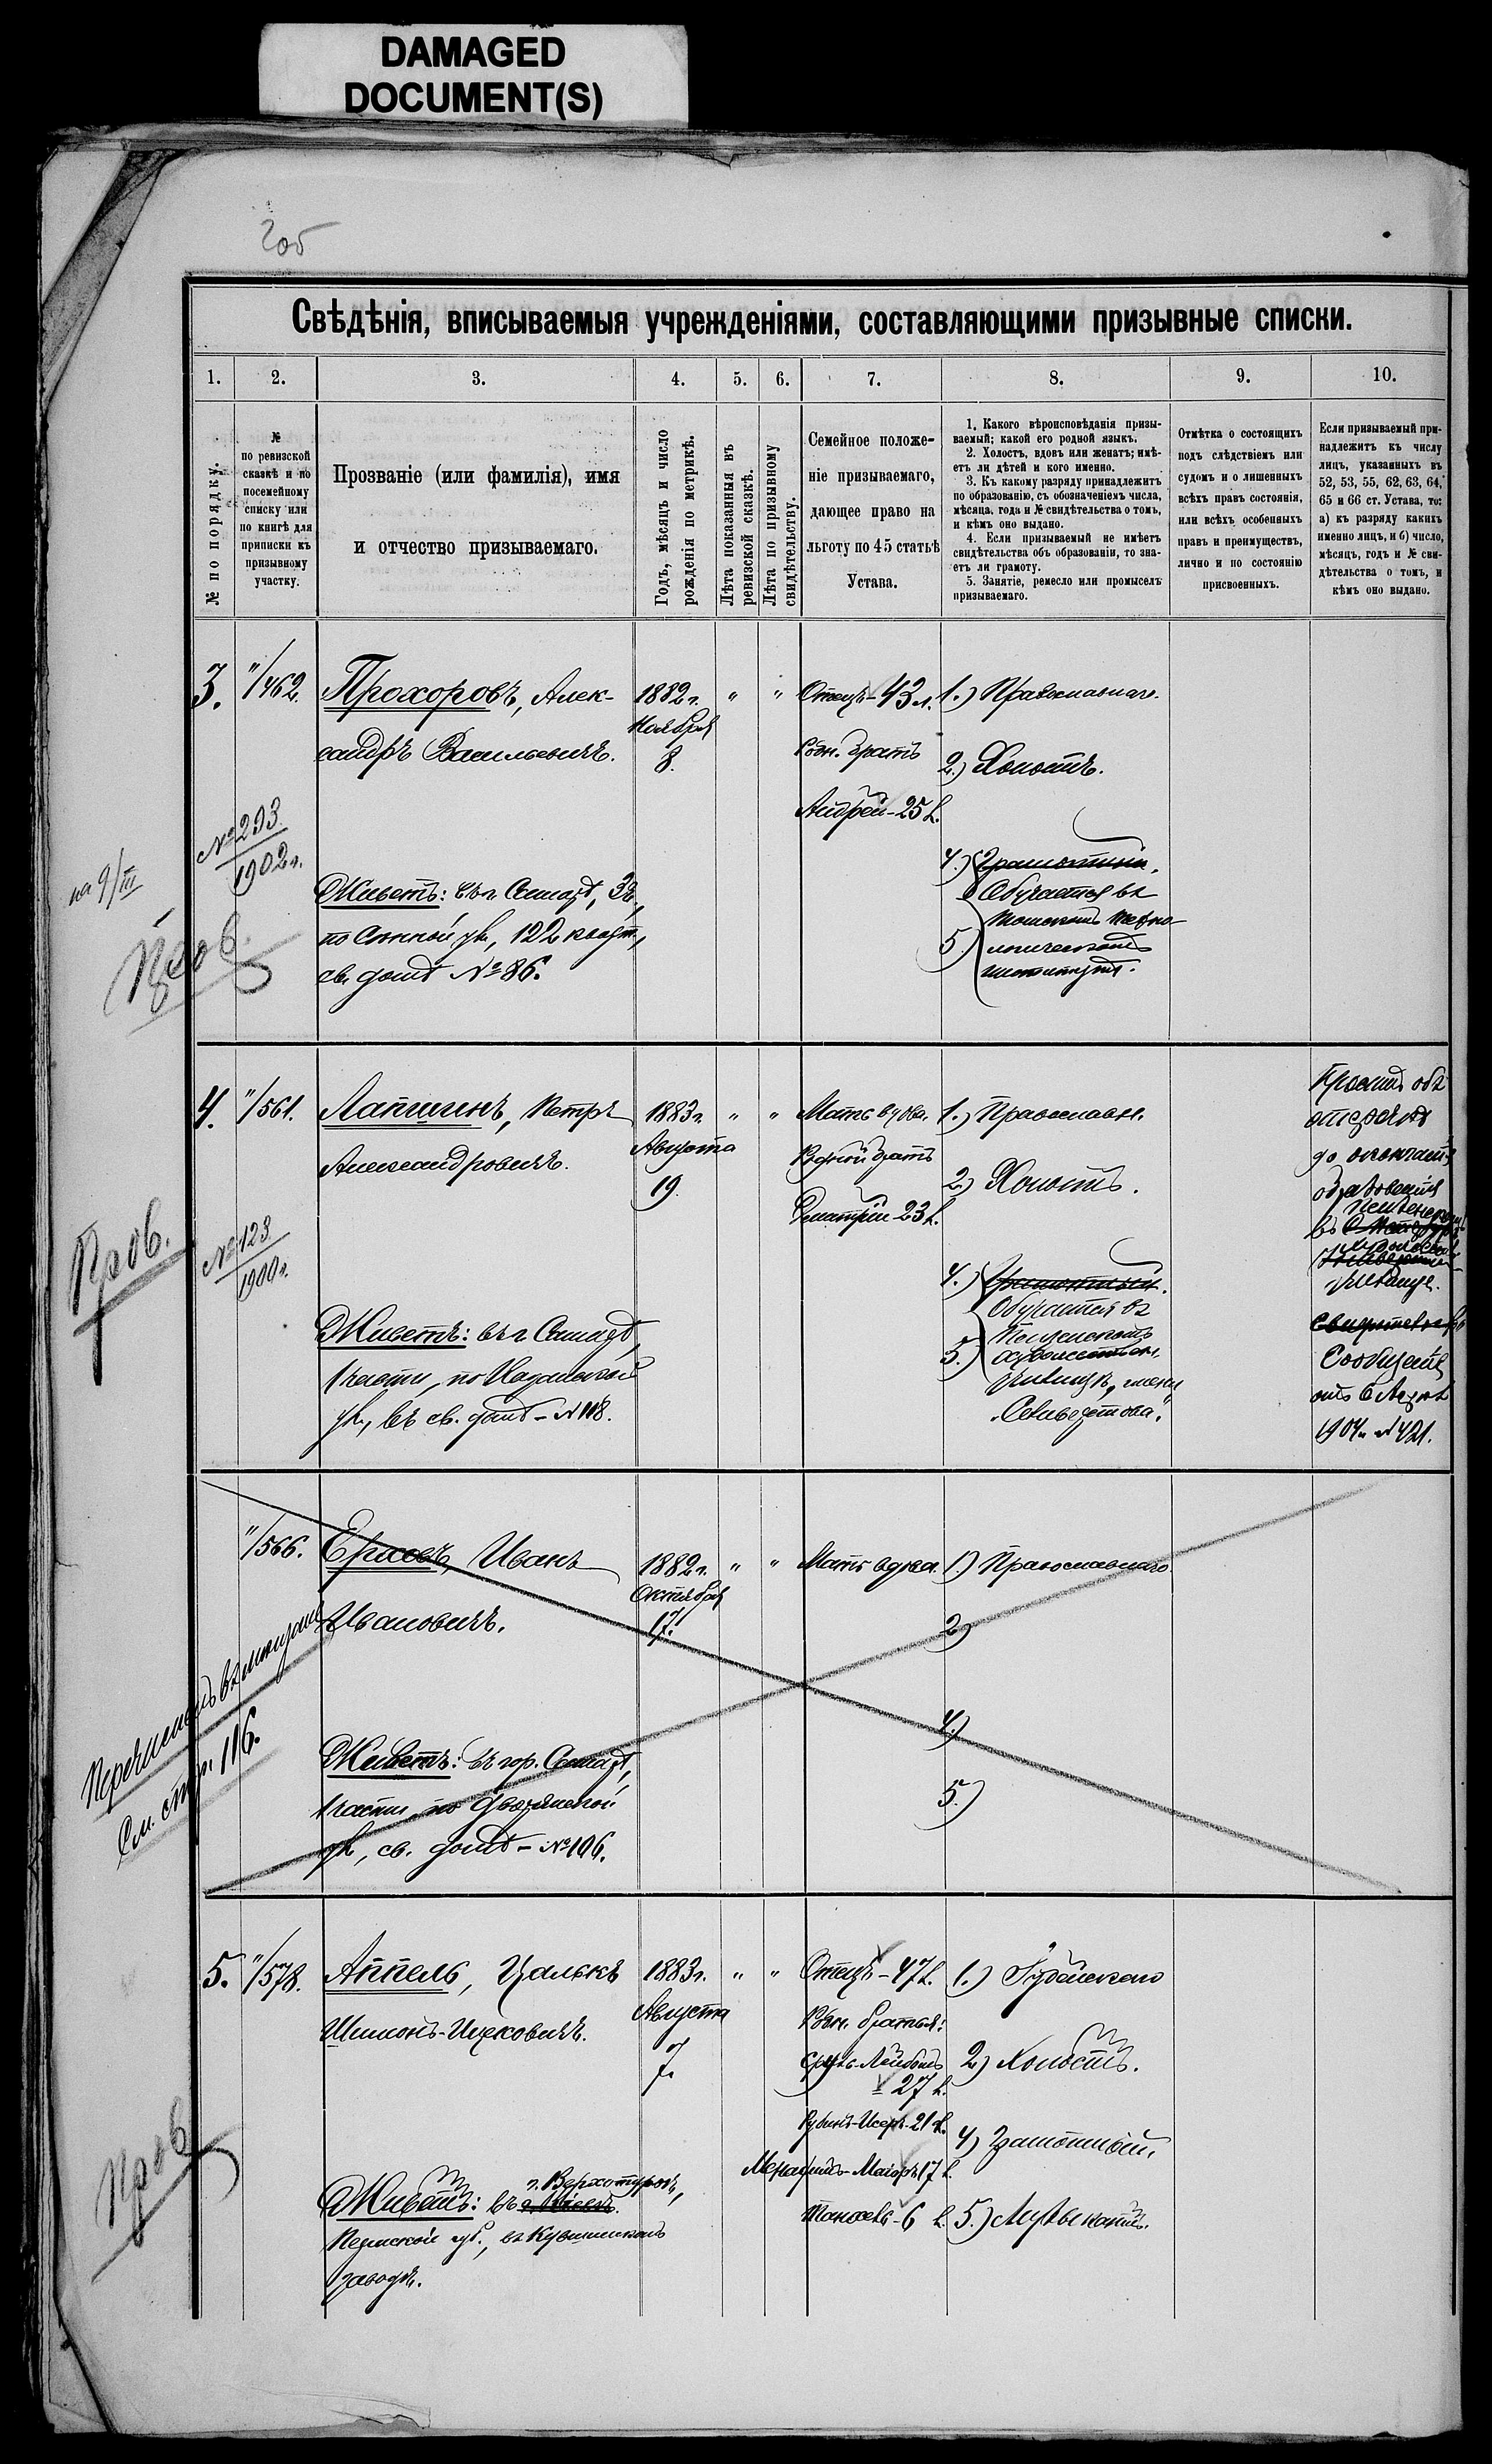 DAMAGED
DOCUMENT(S)
2об
Свѣдѣнія, вписываемыя учрежденіями, составляющими призывные списки.
1. 2. 3. 4. 5. 6. 7. 8. 9. 10.
№ по порядку.
№
по ревизской
сказкѣ и по
посемейному
списку или
по книгѣ для
приписки къ
призывному
участку.
Прозваніе (или фамилія), имя
и отчество призываемаго.
Годъ, мѣсяцъ и число
рожденія по метрикѣ.
Лѣта показанныя въ
ревизской сказкѣ.
Лѣта по призывному
свидѣтельству.
Семейное положе-
ніе призываемаго,
дающее право на
льготу по 45 статьѣ
Устава.
1. Какого вѣроисповѣданія призы-
ваемый; какой его родной языкъ.
2. Холостъ, вдовъ или женатъ; имѣ-
етъ ли дѣтей и кого именно.
3. Къ какому разряду принадлежитъ
по образованію, съ обозначеніемъ числа,
мѣсяца, года и № свидѣтельства о томъ,
и кѣмъ оно выдано.
4. Если призываемый не имѣетъ
свидѣтельства объ образованіи, то зна-
етъ ли грамоту.
5. Занятіе, ремесло или промыселъ
призываемаго.
Отмѣтка о состоящихъ
подъ слѣдствіемъ или
судомъ и о лишенныхъ
всѣхъ правъ состоянія,
или всѣхъ особенныхъ
правъ и преимуществъ,
лично и по состоянію
присвоенныхъ.
Если призываемый при-
надлежитъ къ числу
лицъ, указанныхъ въ
52, 53, 55, 62, 63, 64,
65 и 66 ст. Устава, то:
а) къ разряду какихъ
именно лицъ, и б) число,
мѣсяцъ, годъ и № сви-
дѣтельства о томъ, и
кѣмъ оно выдано.
3.
"/462.
Прохоровъ, Алек-
сандръ Васильевичъ.
1882 г.
Ноября
8.
"
"
Отецъ - 43 л.
Родн. братъ
Андрей - 25 л.
1.) Православнаго.
2.) Холостъ.
4.) Грамотный.
Обучается въ
Томскомъ Техно-
5) логическомъ
институтѣ.
№ 293
1902 г.
на 9/III
Пров.
Живетъ: въ г. Самарѣ, 3 ч.,
по Сѣнной ул., 122 кварт.,
св. домѣ № 86.
4.
"/561.
Лапшинъ, Петръ
Александровичъ.
1883 г.
Августа
19.
"
"
Мать вдова.
Родной братъ
Дмитрій - 23 л.
1.) Православн.
2.) Холостъ.
4.) Грамотный.
Обучается въ
Пензенскомъ
5.) художествен.
училищѣ, имени
"Селиверстова".
Просилъ объ
отсрочкѣ
до окончанія
образованія
въ
Пензенскомъ
художеств.
училищѣ.
Сообщеніе
1904 г. № 421.
№ 123
1900 г.
Пров.
Живетъ: въ г. Самарѣ,
1 части, по Казанской
ул., въ св. домѣ - № 118.
"/566.
Ершовъ, Иванъ
Ивановичъ.
1882 г.
Октября
17.
"
"
Мать вдова.
1.) Православнаго
2)
4.)
5.)
Перечисленъ въ мѣщане
См. стр. 116.
Живетъ: въ гор. Самарѣ,
1 части, по Дворянской
ул., св. домѣ - № 106.
5.
"/578.
Аппель, Цалькъ
Шимонъ-Ицковичъ.
1883 г.
Августа
7.
"
"
Отецъ - 47 л.
Родн. братья:
Сруль-Лейбовъ
- 27 л.
Рувинъ-Исеръ - 21 л.
17 л.
6 л.
1.) Іудейскаго
2.) Холостъ.
4) Грамотный.
5.) Музыкантъ.
Пров.
г. Верхотурск.,
Живетъ: въ г. Кіевѣ.
Пермской губ., въ Кувшинскомъ
заводѣ.